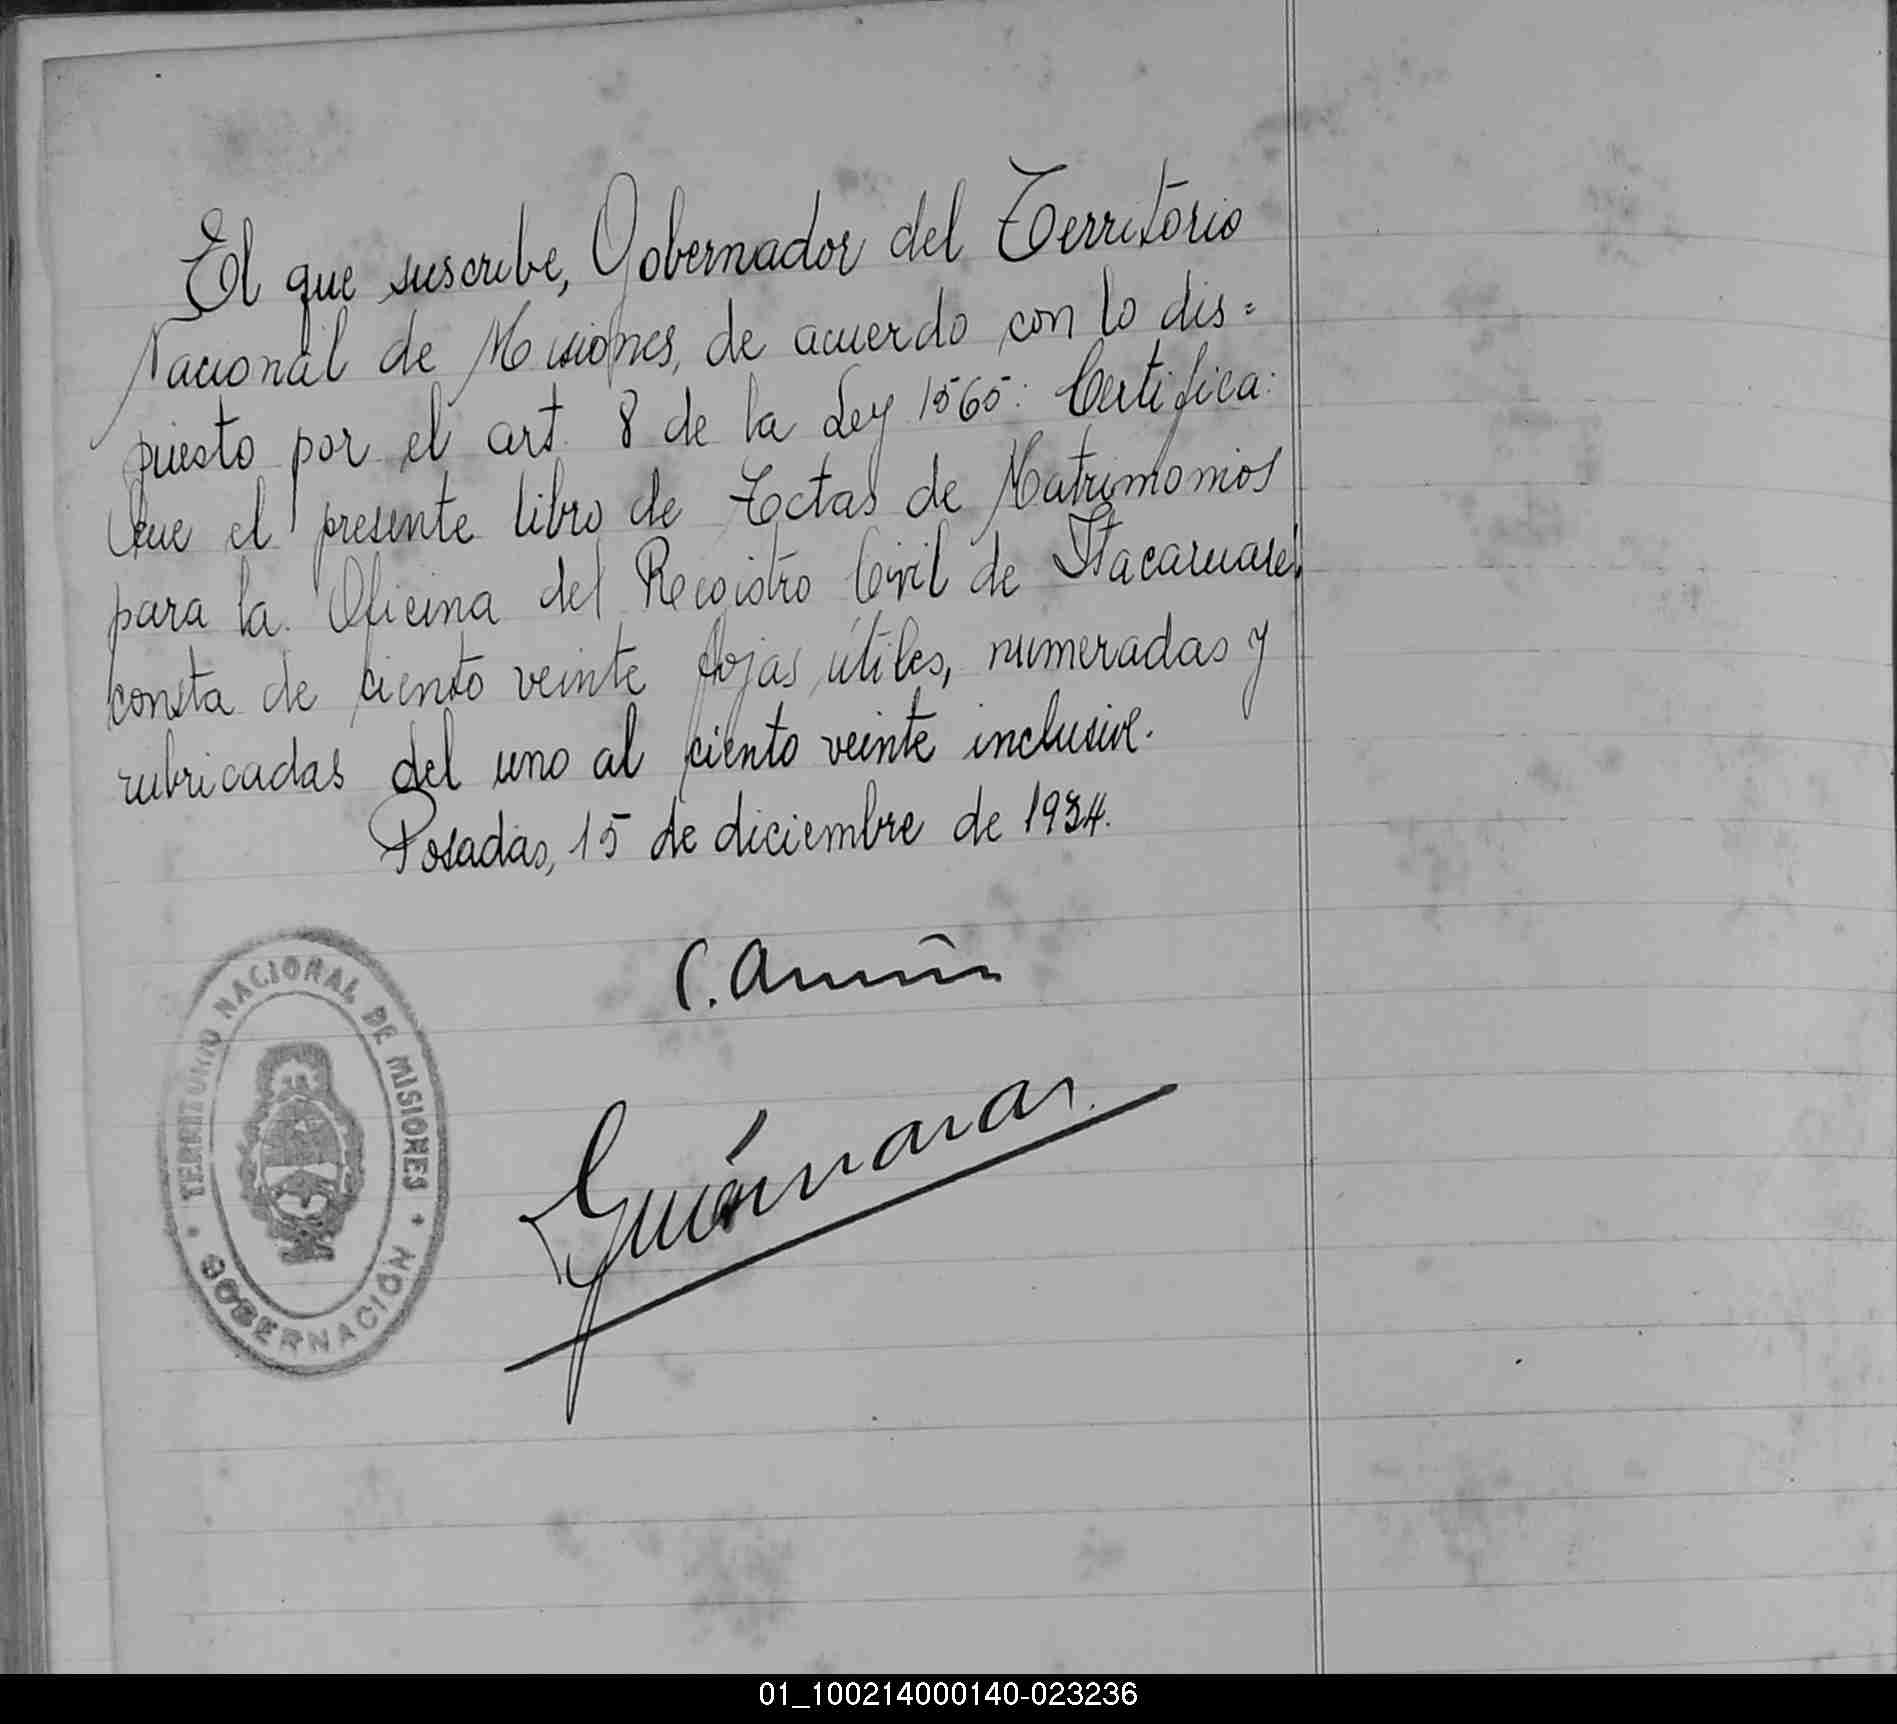 El que suscribe, Gobernador del Territorio
Nacional de Misiones, de acuerdo con lo dis=
puesto por el art. 8 de la Ley 1565: Certifica:
Que el presente libro de Actas de Matrimonios
para la Oficina del Registro Civil de Itacaruaré,
consta de ciento veinte fojas útiles, numeradas y
rubricadas del uno al ciento veinte inclusive.
Posadas, 15 de diciembre de 1934.
C. Acuña
TERRITORIO NACIONAL DE MISIONES
GOBERNACIÓN
01_100214000140-023236